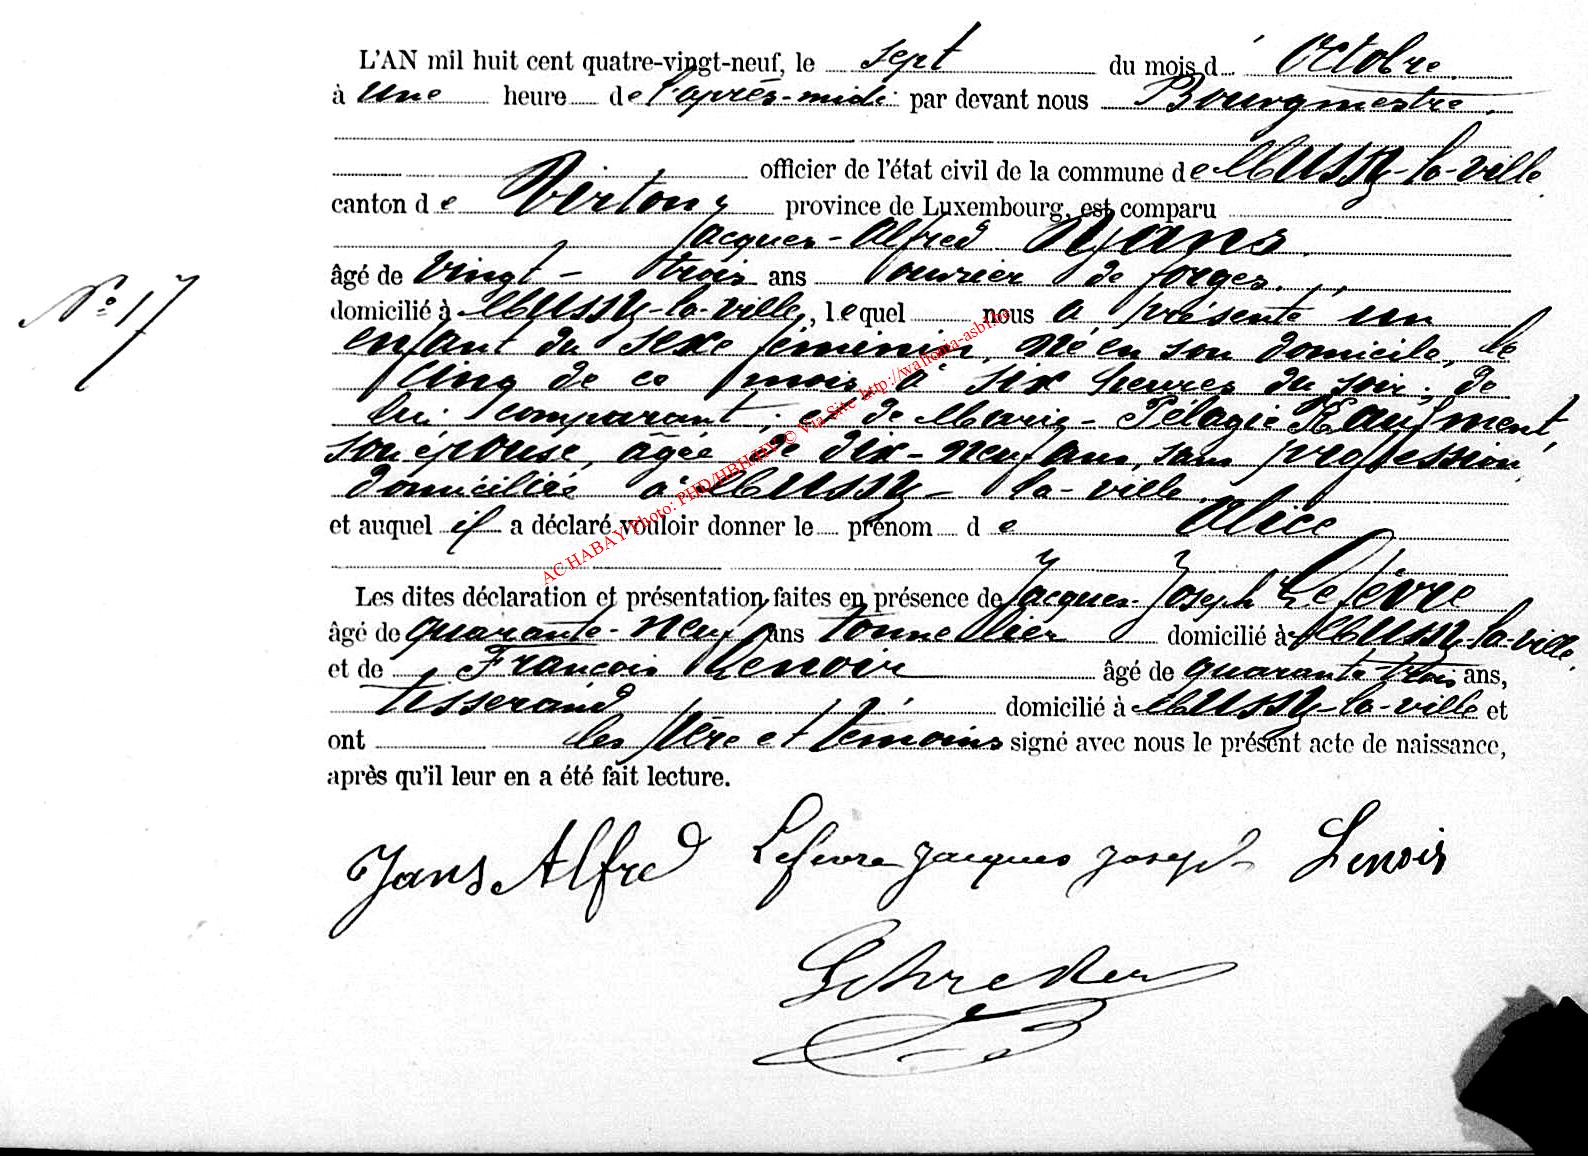 L'AN mil huit cent quatre-vingt-neuf, le sept du mois d' Octobre
à une heure de l'après-midi par devant nous Bourgmestre
officier de l'état civil de la commune de Mussy-la-ville,
canton de Virton, province de Luxembourg, est comparu
Jacques-Alfred Yans
âgé de vingt-trois ans ouvrier de forges.
N° 17
domicilié à Mussy-la-ville, lequel nous a présenté un
enfant du sexe féminin, né en son domicile, le
cinq de ce mois à six heures du soir, de
lui comparant, et de Marie-Pélagie Kauffment,
son épouse, âgée de dix-neuf ans, sans profession,
domiciliée à Mussy-la-ville.
et auquel il a déclaré vouloir donner le prénom de Alice
Les dites déclaration et présentation faites en présence de Jacques-Joseph Lefèvre
âgé de quarante-neuf ans tonnellier domicilié à Mussy-la-ville
et de François Lenoir âgé de quarante-trois ans,
tisserand domicilié à Mussy-la-ville et
ont les père et témoins signé avec nous le présent acte de naissance,
après qu'il leur en a été fait lecture.
Jans Alfred Lefevre Jacques Joseph Lenoir
AC HABAY Photo: PHD/HBH/HV © Via Site http://wallonia-asbl.be